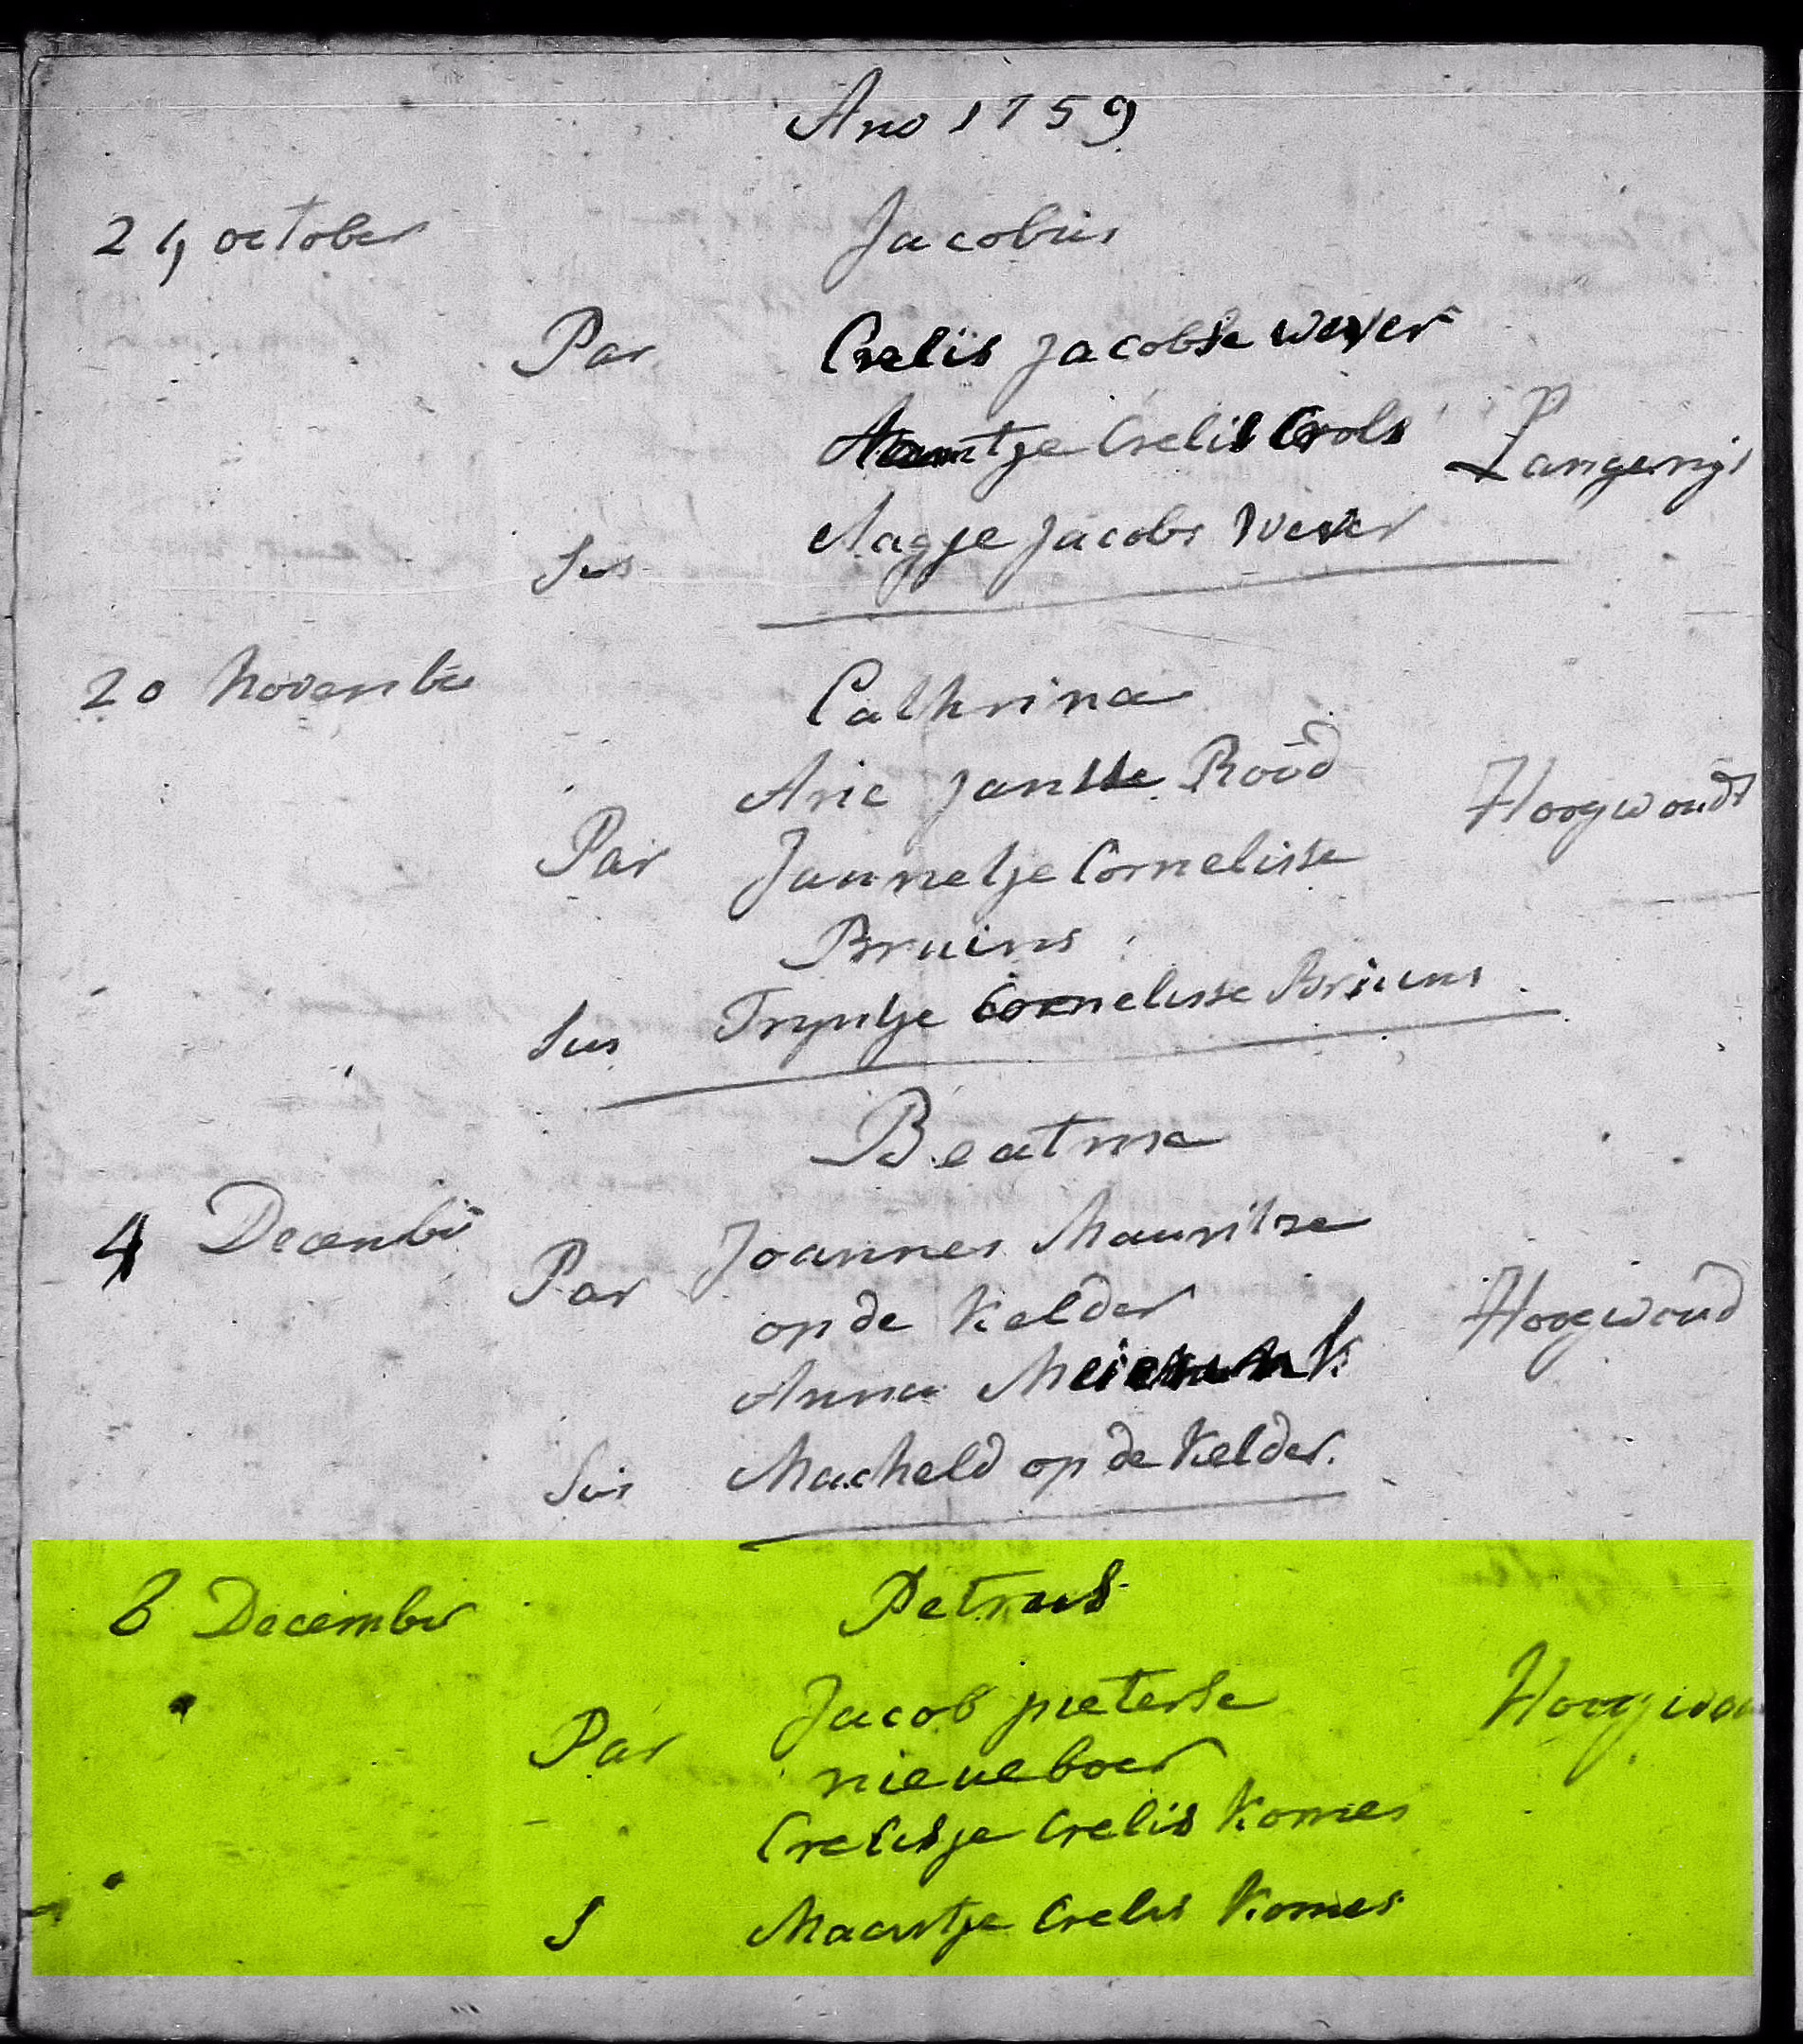 Ano 1759
24 october Jacobus
Par Crelis Jacobse wever
Crelis Crols Langerijs
Sus Aagje Jacobs Wever
20 November Cathrina
Arie Jansse Rood Hoogwoudt
Par Jannetje Cornelisse
Bruins
Sus Tryntje Cornelisse Bruins
Beatrix
4 December
Par Joannes Mauritse
op de Kelder Hoogwoud
Anna
Sus Macheld op de Kelder.
8 December Petrus
Par Jacob pieterse Hoogwou
nieueboer
Crelisje Crelis Komes
S Maertje Crelis Komes